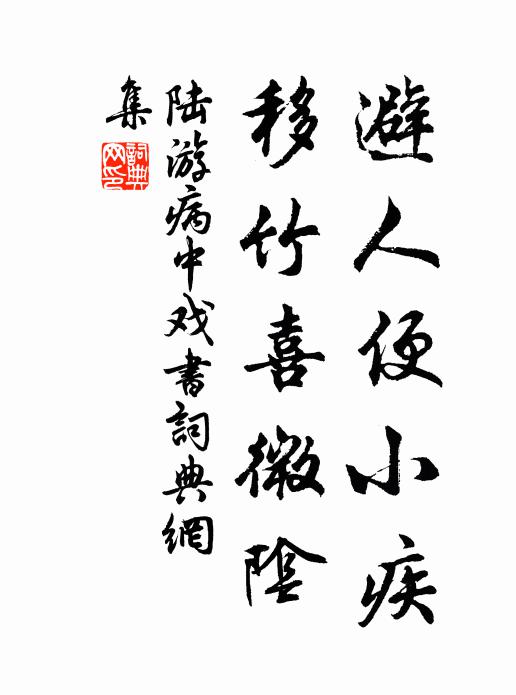 避人便小疾
移竹喜微陰
陆游病中戏書詞典網
集
詞典
网印